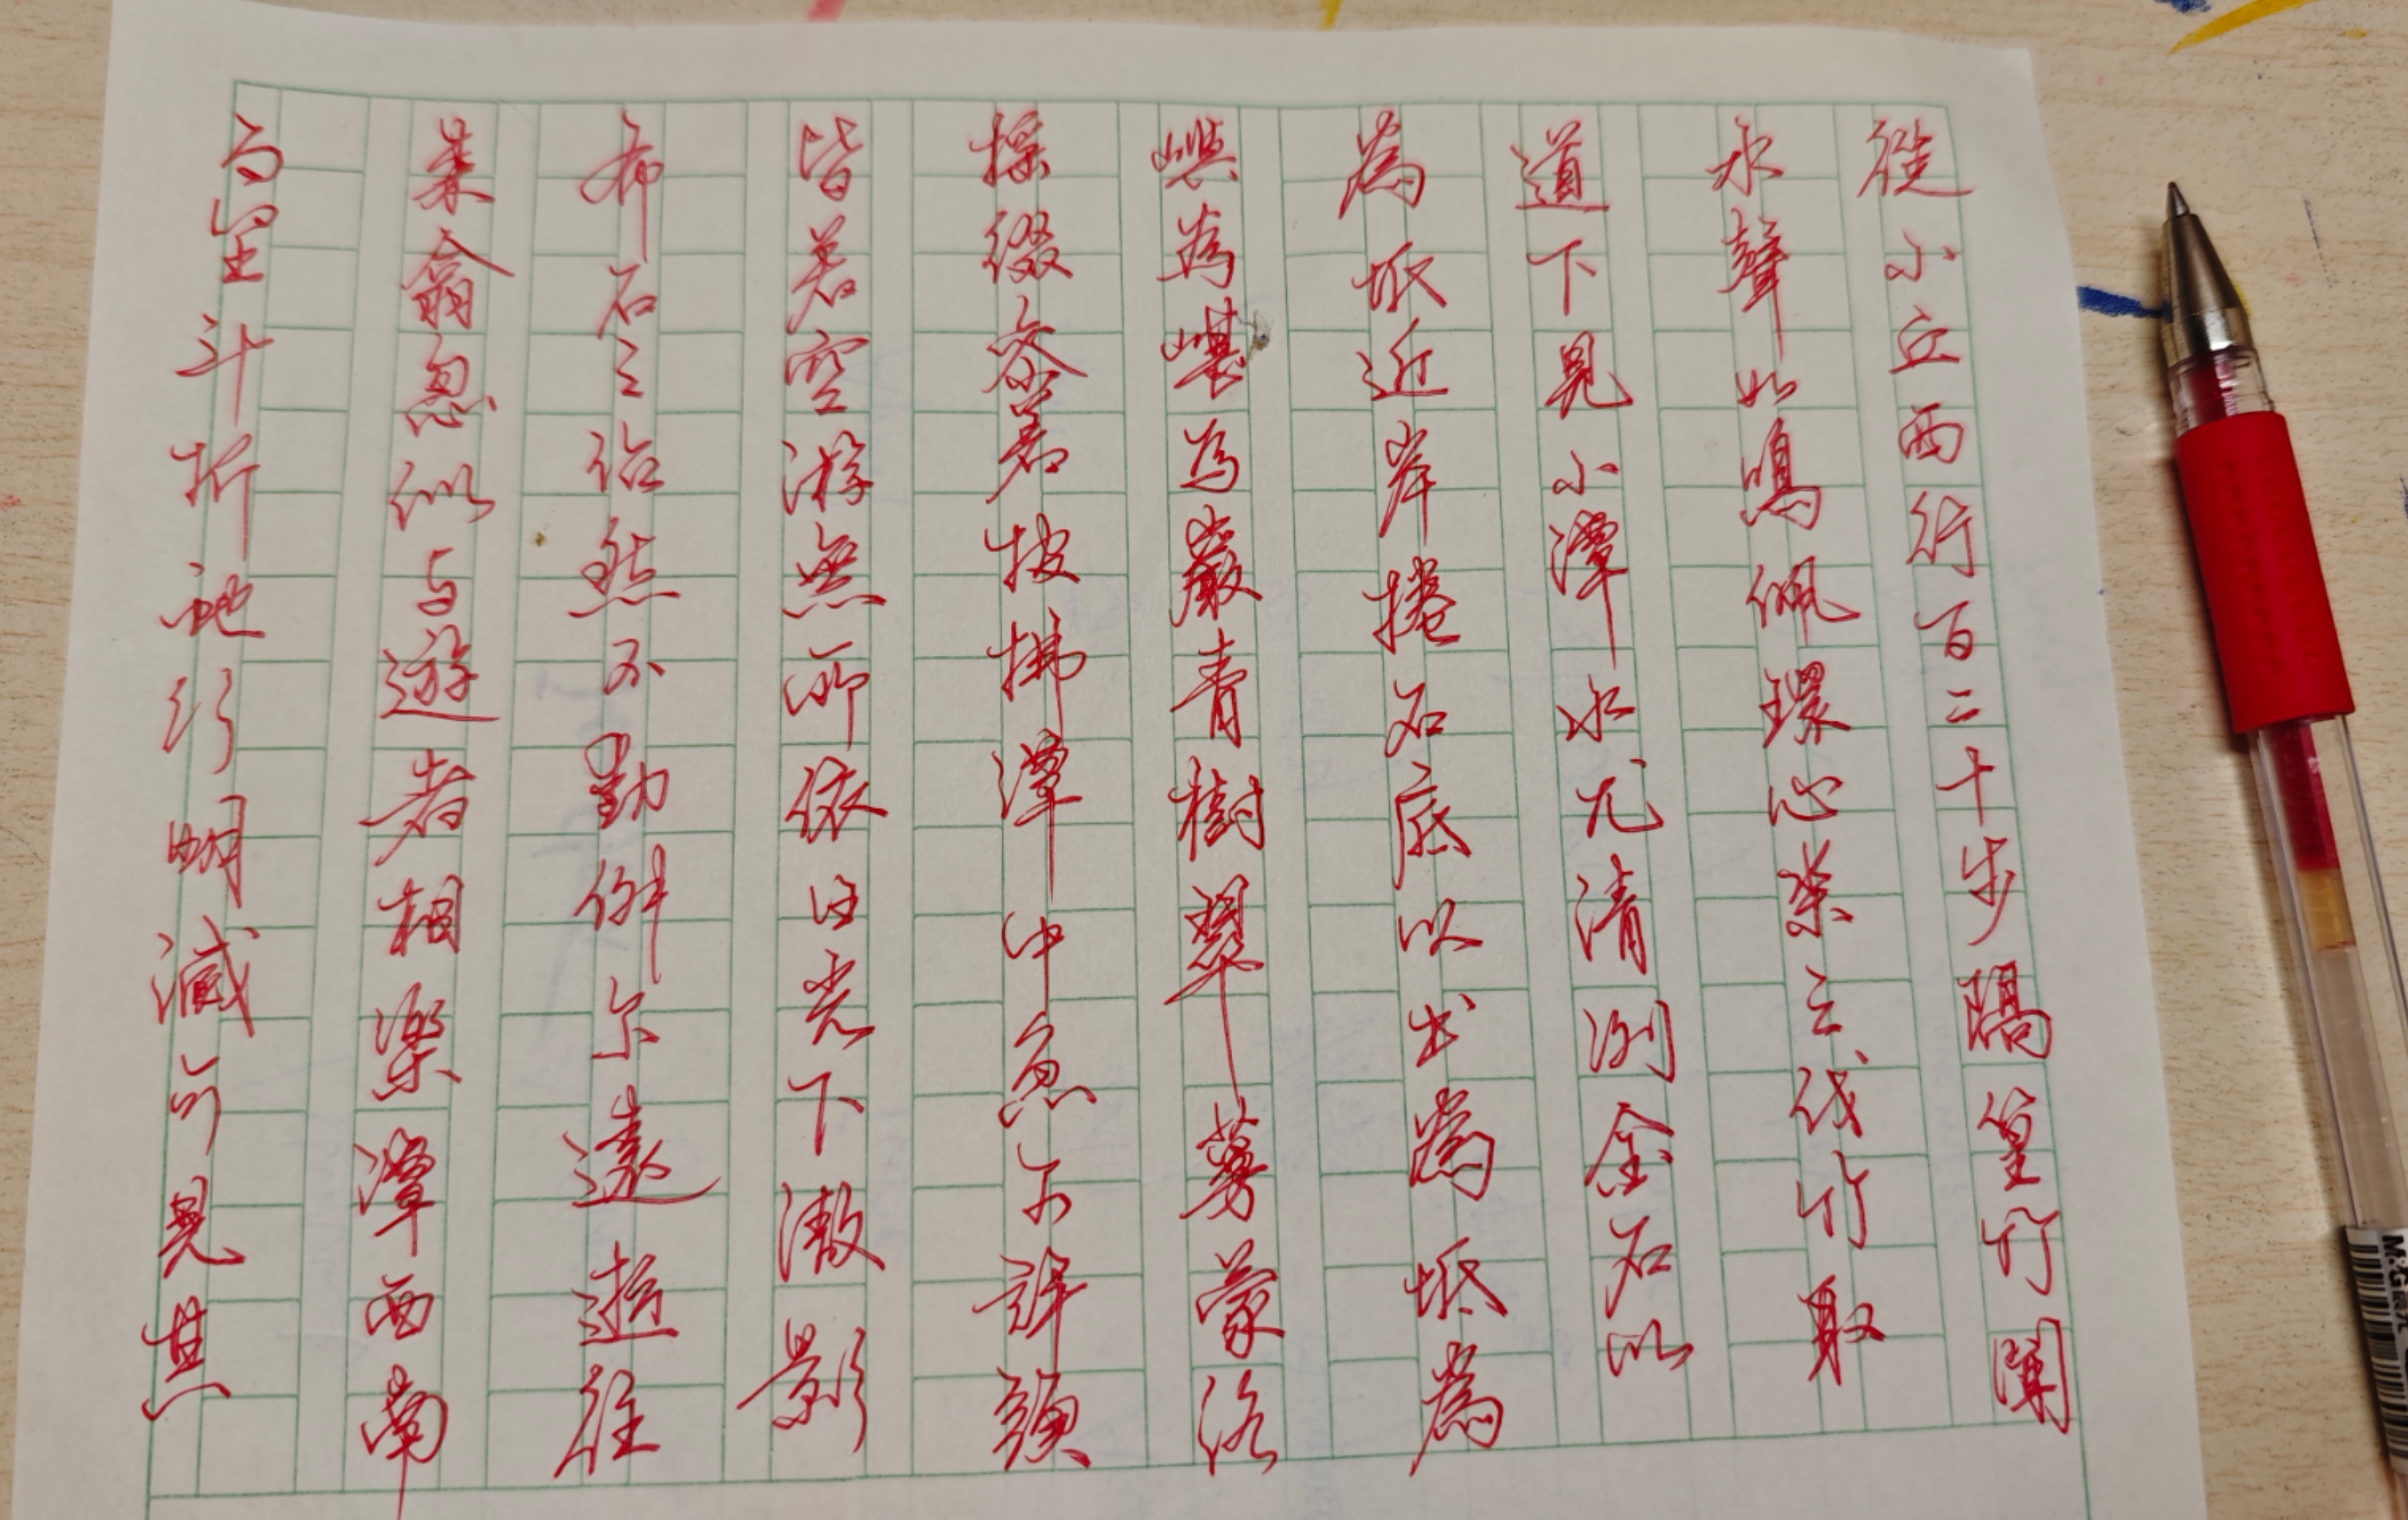 從小丘西行百二十步隔篁竹聞
水聲如鳴佩環心樂之伐竹取
道下見小潭水尤清冽全石以
為坻近岸捲石底以出為坻為
嶼為嵁為巖青樹翠蔓蒙洛
搖綴參差披拂潭中魚可許頭
皆若空游無所依日光下澈影
布石上佁然不動俶尔遠逝往
來翕忽似与遊者相樂潭西南
而望斗折蛇行明滅可見其
M&G